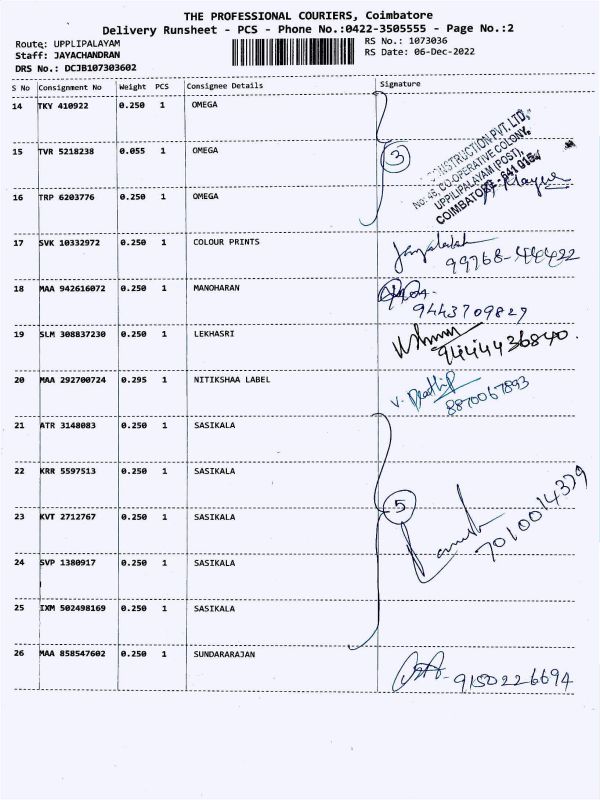 THE PROFESSIONAL COURIERS, Coimbatore
Delivery Runsheet - PCS - Phone No.:0422-3505555 - Page No.:2
Route: UPPLIPALAYAM RS No.: 1073036
Staff: JAYACHANDRAN RS Date: 06-Dec-2022
DRS No.: DCJB107303602
S No Consignment No Weight PCS Consignee Details Signature
14 TKY 410922 0.250 1 OMEGA
15 TVR 5218238 0.055 1 OMEGA
3
CONSTRUCTION PVT. LTD.,
No: 46, CO-OPERATIVE COLONY,
UPPILIPALAYAM (POST),
COIMBATORE - 641 015
16 TRP 6203776 0.250 1 OMEGA
17 SVK 10332972 0.250 1 COLOUR PRINTS
99768-44422
18 MAA 942616072 0.250 1 MANOHARAN
9443709827
19 SLM 308837230 0.250 1 LEKHASRI
9444436840.
20 MAA 292700724 0.295 1 NITIKSHAA LABEL
8870067893
21 ATR 3148083 0.250 1 SASIKALA
22 KRR 5597513 0.250 1 SASIKALA
23 KVT 2712767 0.250 1 SASIKALA
5
7010014379
24 SVP 1380917 0.250 1 SASIKALA
25 IXM 502498169 0.250 1 SASIKALA
26 MAA 858547602 0.250 1 SUNDARARAJAN
9150226694